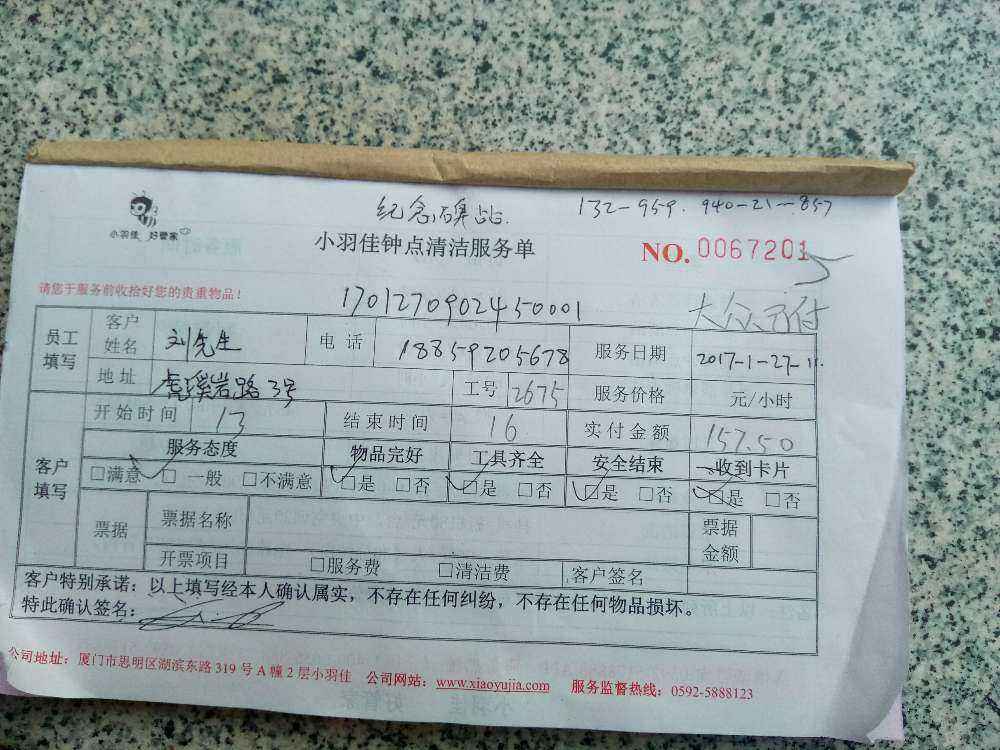 纪念碑
132-959.940-21-857
小羽佳 好管家
小羽佳钟点清洁服务单
NO.0067201
5
请您于服务前收拾好您的贵重物品！
1701270902450001
大众
员工填写
客户姓名 刘先生 电话 18859205678 服务日期 2017-1-27-11.
地址 虎溪岩路3号 工号 2675 服务价格 元/小时
客户填写
开始时间 13 结束时间 16 实付金额 157.50
服务态度 物品完好 工具齐全 安全结束 收到卡片
□满意 □一般 □不满意 □是 □否 □是 □否 □是 □否 □是 □否
票据 票据名称 票据金额
开票项目 □服务费 □清洁费 客户签名
客户特别承诺：以上填写经本人确认属实，不存在任何纠纷，不存在任何物品损坏。
特此确认签名：
公司地址：厦门市思明区湖滨东路319号A幢2层小羽佳 公司网站：www.xiaoyujia.com 服务监督热线：0592-5888123